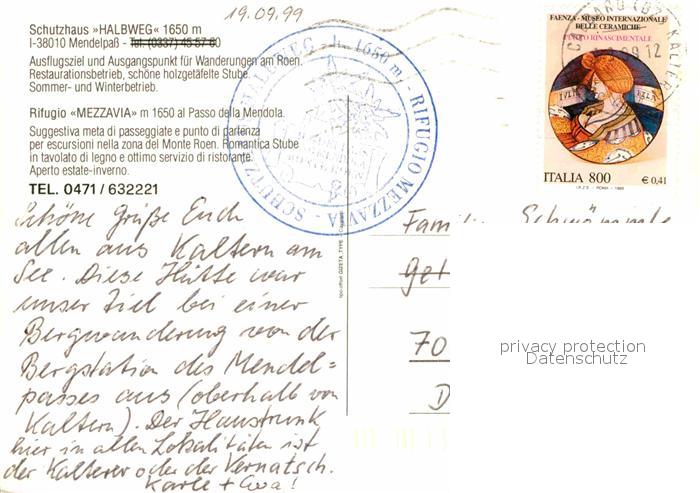 19.09.99
Schutzhaus »HALBWEG« 1650 m
I-38010 Mendelpaß - Tel. (0337) 45 57 60
Ausflugsziel und Ausgangspunkt für Wanderungen am Roen.
Restaurationsbetrieb, schöne holzgetäfelte Stube.
Sommer- und Winterbetrieb.
Rifugio «MEZZAVIA» m 1650 al Passo della Mendola.
Suggestiva meta di passeggiate e punto di partenza
per escursioni nella zona del Monte Roen. Romantica Stube
in tavolato di legno e ottimo servizio di ristorante.
Aperto estate-inverno.
TEL. 0471/632221
Schöne Grüße Euch
allen aus Kaltern am
See. Diese Hütte war
unser Ziel bei einer
Bergwanderung von der
Bergstation des Mendel=
passes aus (oberhalb von
Kaltern). Der Haustrunk
hier in allen Lokalitäten ist
der Kalterer oder der Vernatsch.
Karle + Eva!
HALBWEG - h. 1650 m - RIFUGIO MEZZAVIA - SCHUTZ
FAENZA - MUSEO INTERNAZIONALE
DELLE CERAMICHE
PIATTO RINASCIMENTALE
ITALIA 800
€ 0,41
Fam
Get
70
D
privacy protection
Datenschutz